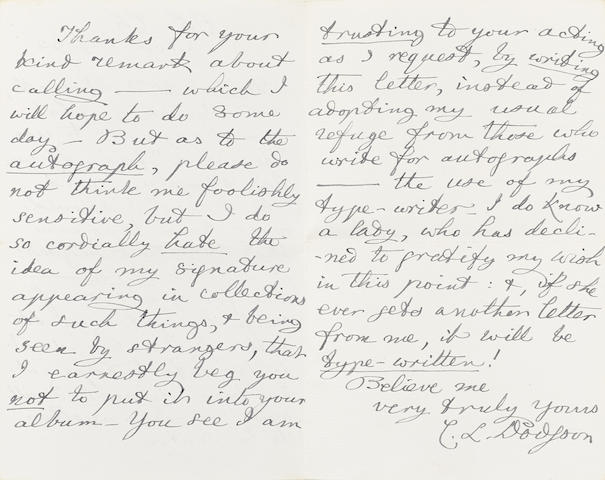 Thanks for your
kind remark about
calling — which I
will hope to do some
day — But as to the
autograph, please do
not think me foolishly
sensitive, but I do
so cordially hate the
idea of my signature
appearing in collections
of such things, & being
seen by strangers, that
I earnestly beg you
not to put it into your
album — You see I am
trusting to your acting
as I request, by writing
this letter, instead of
adopting my usual
refuge from those who
write for autographs
— the use of my
type-writer — I do know
a lady, who has decli-
-ned to gratify my wish
in this point: &, if she
ever gets another letter
from me, it will be
type-written!
Believe me
very truly yours
C. L. Dodgson